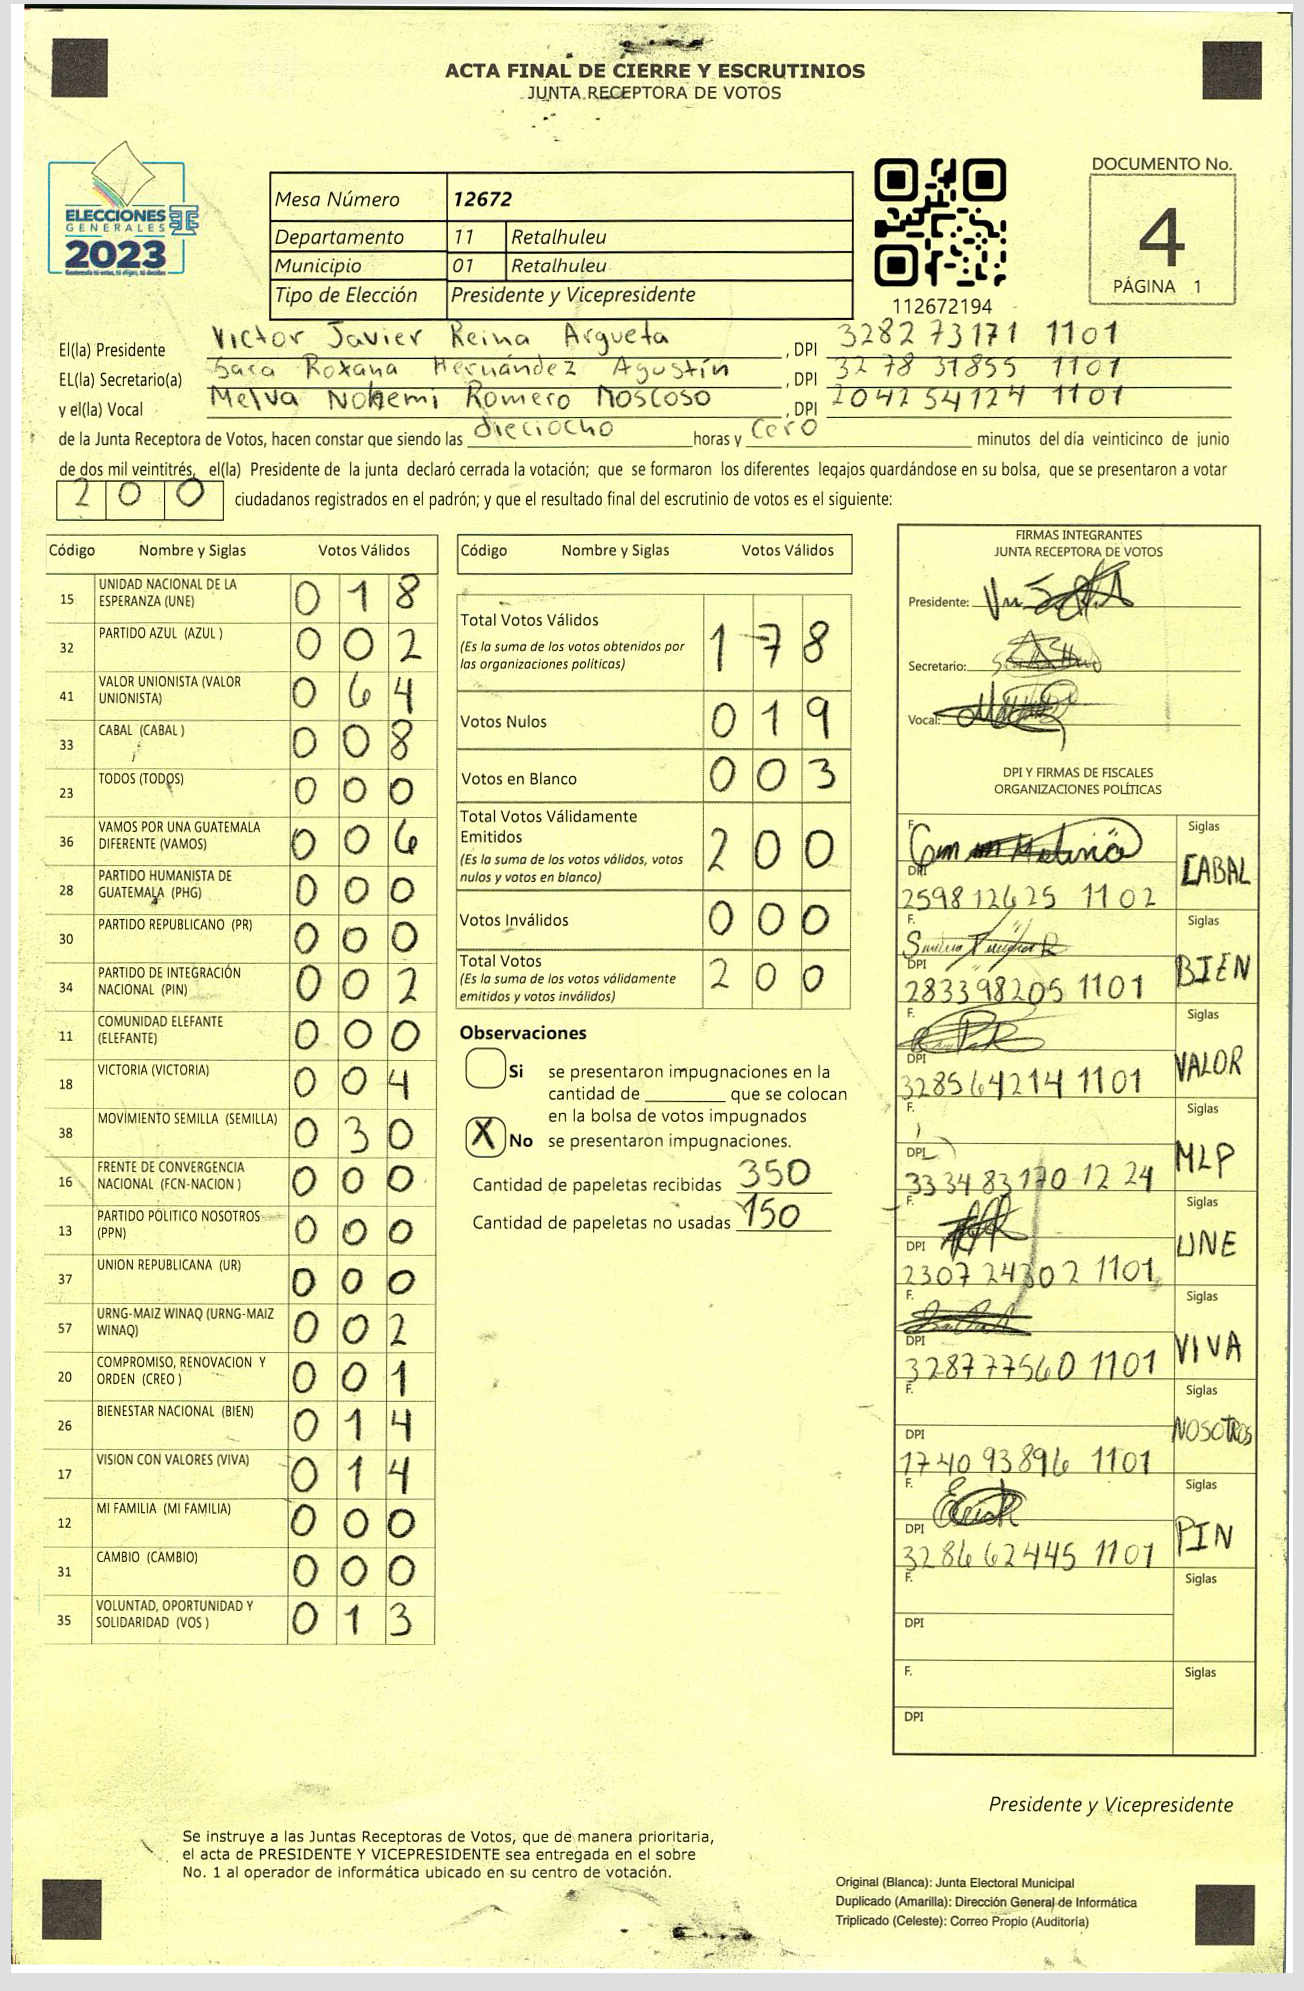 ACTA FINAL DE CIERRE Y ESCRUTINIOS
JUNTA RECEPTORA DE VOTOS
ELECCIONES
GENERALES
2023
Mesa Número 12672
Departamento 11 Retalhuleu
Municipio 01 Retalhuleu
Tipo de Elección Presidente y Vicepresidente
112672194
DOCUMENTO No.
4
PÁGINA 1
El(la) Presidente Victor Javier Reina Argueta, DPI 3282 73171 1101
EL(la) Secretario(a) Sara Roxana Hernández Agustín, DPI 3278 31855 1101
y el(la) Vocal Melva Nohemi Romero Moscoso, DPI 2042 54124 1101
de la Junta Receptora de Votos, hacen constar que siendo las dieciocho horas y cero minutos del día veinticinco de junio
de dos mil veintitrés, el(la) Presidente de la junta declaró cerrada la votación; que se formaron los diferentes legajos guardándose en su bolsa, que se presentaron a votar
200 ciudadanos registrados en el padrón; y que el resultado final del escrutinio de votos es el siguiente:
Código Nombre y Siglas Votos Válidos
15 UNIDAD NACIONAL DE LA ESPERANZA (UNE) 0 1 8
32 PARTIDO AZUL (AZUL ) 0 0 2
41 VALOR UNIONISTA (VALOR UNIONISTA) 0 6 4
33 CABAL (CABAL ) 0 0 8
23 TODOS (TODOS) 0 0 0
36 VAMOS POR UNA GUATEMALA DIFERENTE (VAMOS) 0 0 6
28 PARTIDO HUMANISTA DE GUATEMALA (PHG) 0 0 0
30 PARTIDO REPUBLICANO (PR) 0 0 0
34 PARTIDO DE INTEGRACIÓN NACIONAL (PIN) 0 0 2
11 COMUNIDAD ELEFANTE (ELEFANTE) 0 0 0
18 VICTORIA (VICTORIA) 0 0 4
38 MOVIMIENTO SEMILLA (SEMILLA) 0 3 0
16 FRENTE DE CONVERGENCIA NACIONAL (FCN-NACION ) 0 0 0
13 PARTIDO POLITICO NOSOTROS (PPN) 0 0 0
37 UNION REPUBLICANA (UR) 0 0 0
57 URNG-MAIZ WINAQ (URNG-MAIZ WINAQ) 0 0 2
20 COMPROMISO, RENOVACION Y ORDEN (CREO ) 0 0 1
26 BIENESTAR NACIONAL (BIEN) 0 1 4
17 VISION CON VALORES (VIVA) 0 1 4
12 MI FAMILIA (MI FAMILIA) 0 0 0
31 CAMBIO (CAMBIO) 0 0 0
35 VOLUNTAD, OPORTUNIDAD Y SOLIDARIDAD (VOS ) 0 1 3
Código Nombre y Siglas Votos Válidos
Total Votos Válidos 1 7 8
(Es la suma de los votos obtenidos por
las organizaciones políticas)
Votos Nulos 0 1 9
Votos en Blanco 0 0 3
Total Votos Válidamente
Emitidos 2 0 0
(Es la suma de los votos válidos, votos
nulos y votos en blanco)
Votos Inválidos 0 0 0
Total Votos 2 0 0
(Es la suma de los votos válidamente
emitidos y votos inválidos)
Observaciones
Si se presentaron impugnaciones en la
cantidad de ________ que se colocan
en la bolsa de votos impugnados
X No se presentaron impugnaciones.
Cantidad de papeletas recibidas 350
Cantidad de papeletas no usadas 150
FIRMAS INTEGRANTES
JUNTA RECEPTORA DE VOTOS
Presidente:
Secretario:
Vocal:
DPI Y FIRMAS DE FISCALES
ORGANIZACIONES POLÍTICAS
F. Siglas CABAL
DPI 2598 12625 1102
F. Siglas BIEN
DPI 2833 98205 1101
F. Siglas VALOR
DPI 3285 64214 1101
F. Siglas MLP
DPI 3334 83170 12 24
F. Siglas UNE
DPI 2307 24302 1101
F. Siglas VIVA
DPI 3287 77560 1101
F. Siglas NOSOTROS
DPI 1740 93896 1101
F. Siglas PIN
DPI 3286 62445 1101
F. Siglas
DPI
F. Siglas
DPI
Presidente y Vicepresidente
Se instruye a las Juntas Receptoras de Votos, que de manera prioritaria,
el acta de PRESIDENTE Y VICEPRESIDENTE sea entregada en el sobre
No. 1 al operador de informática ubicado en su centro de votación.
Original (Blanca): Junta Electoral Municipal
Duplicado (Amarilla): Dirección General de Informática
Triplicado (Celeste): Correo Propio (Auditoría)